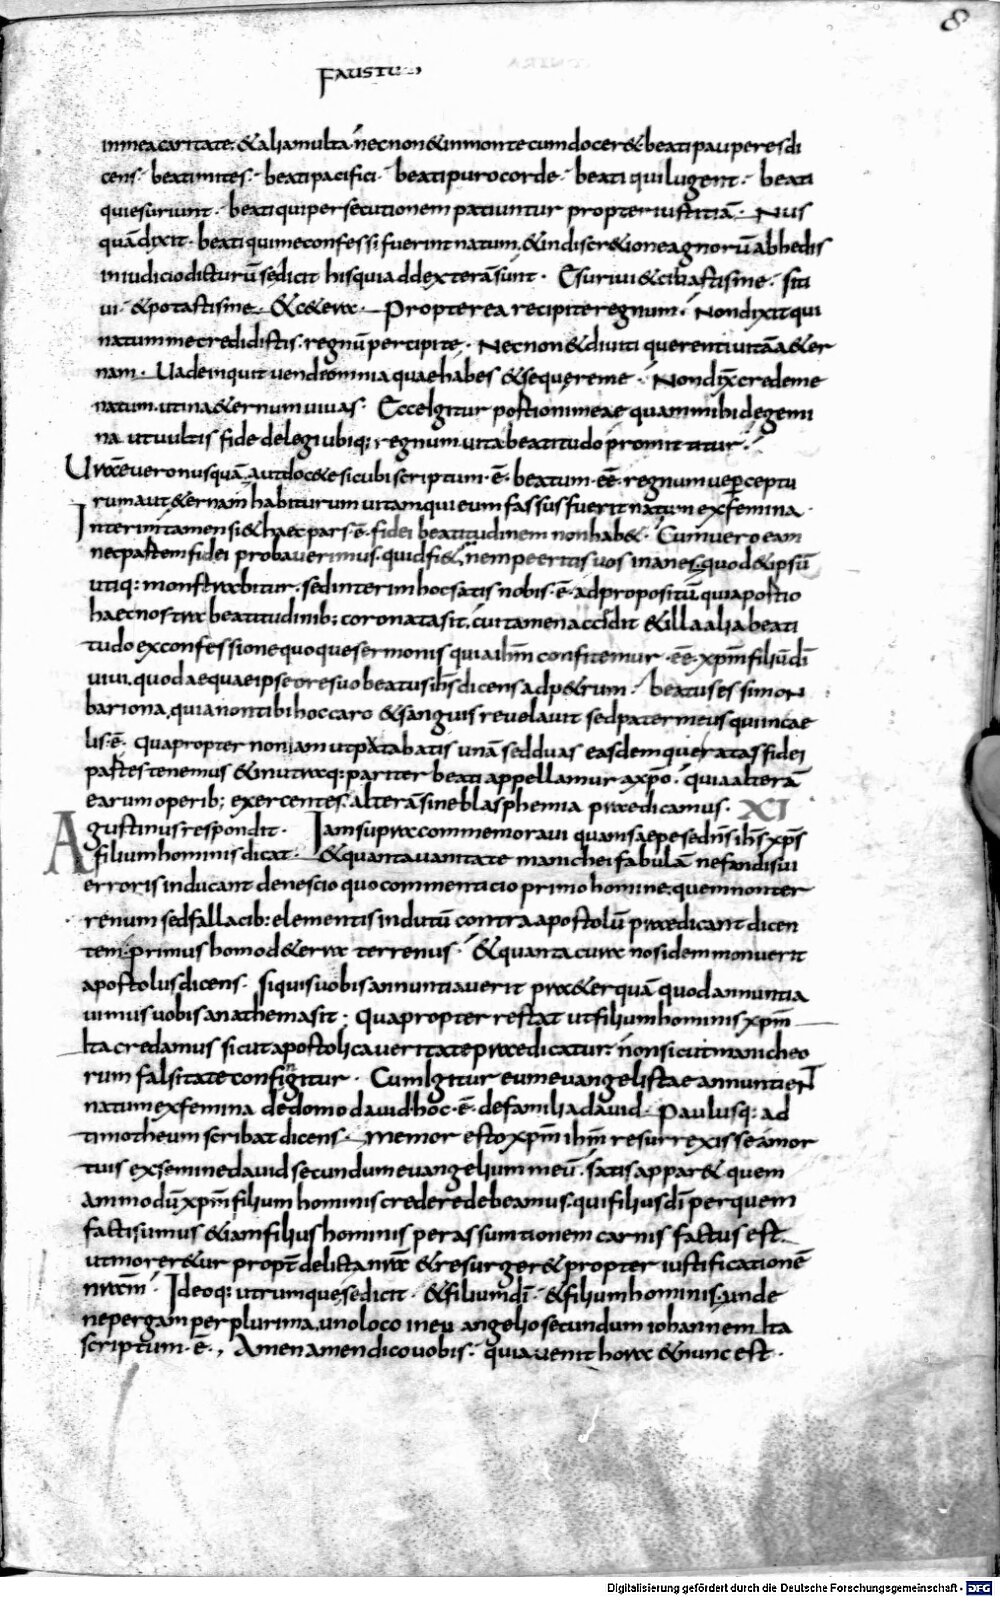 8
FAUSTU
in mea caritate. & alia multa. necnon & in monte cum docer& beati pauperes di
cens. beati mites. beati pacifici. beati puro corde. beati qui lugent. beati
qui esuriunt. beati qui persecutionem patiuntur propter iustitiā. Nus
quā dixit. beati qui me confessi fuerint natum. & in discr&ione agnorū ab hedis
in iudicio dicturū se dicit his qui ad dexterā sunt. Esurivi & cibastis me. siti
vi. & potastis me. &c&era. Propterea recipite regnum. Non dixit qui
natum me credidistis. regnū percipite. Necnon & diviti querenti vitā a&er
nam. Vade inquit vende omnia quae habes & sequere me. Non dix̄ crede me
natum. ut in a&ernum vivas. Ecce Igitur portioni meae quam mihi de gemi
na ut vultis fide delegi ubiq; regnum vita beatitudo promittitur.
Vr̄ae vero nusquā. aut doc&e sicubi scriptum .ē. beatum .eē. regnum ve perceptu
rum aut &ernam habiturum vitam qui eum fassus fuerit natum ex femina.
Interim tamen si & haec pars .ē. fidei beatitudinem non hab&. Cum vero eam
nec partem fidei probaverimus. quid fi&. nempe eritis vos inanes. quod & ipsū
utiq: monstrabitur. sed interim hoc satis nobis .ē. ad propositū. quia portio
haec nostra beatitudinib; coronata sit. cui tamen accidit & illa alia beati
tudo ex confessione quoque sermonis quia ih̄m confitemur .eē. xp̄m filiū dī
vivi. quod aeque ipse ore suo beatus ih̄s dicens ad p&rum. beatus es simon
bariona. quia non tibi hoc caro & sanguis revelavit sed pater meus qui in cae
lis .ē. Quapropter non iam ut putabatis unā sed duas easdemque ratas fidei
partes tenemus & in utraq: pariter beati appellamur a xp̄o. quia alterā
earum operib; exercentes. alterā sine blasphemia praedicamus. XI
Agustinus respondit. Iam supra commemoravi quam saepe se dn̄s ih̄s xp̄s
filium hominis dicat. & quanta vanitate manichei fabulā nefandi sui
erroris inducant de nescio quo commenticio primo homine. quem non ter
renum sed fallacib: elementis indutū contra apostolū praedicant dicen
tem. primus homo de terra terrenus. & quanta cura nos idem monuerit
apostolus dicens. si quis vobis annuntiaverit praeterquā quod annuntia
vimus vobis anathema sit. Quapropter restat ut filium hominis xp̄m
Ita credamus sicut apostolica veritate praedicatur: non sicut manicheo
rum falsitate confingitur. Cum Igitur eum evangelistae annuntient
natum ex femina de domo david hoc .ē. de familia david. Paulusq: ad
timotheum scribat dicens. Memor esto xp̄m ih̄m resurrexisse a mor
tuis ex semine david secundum evangelium meū. satis appar& quem
ammodū xp̄m filium hominis credere debeamus. qui filius dī per quem
facti sumus & iam filius hominis per assumtionem carnis factus est.
ut morer&ur propt̄ delicta nr̄a & resurger& propter iustificationē
nr̄am. Ideoq: utrumque se dicit. & filium dī. & filium hominis. unde
ne pergam per plurima. uno loco in evangelio secundum iohannem Ita
scriptum .ē., Amen amen dico vobis. quia venit hora & nunc est.
Digitalisierung gefördert durch die Deutsche Forschungsgemeinschaft - DFG